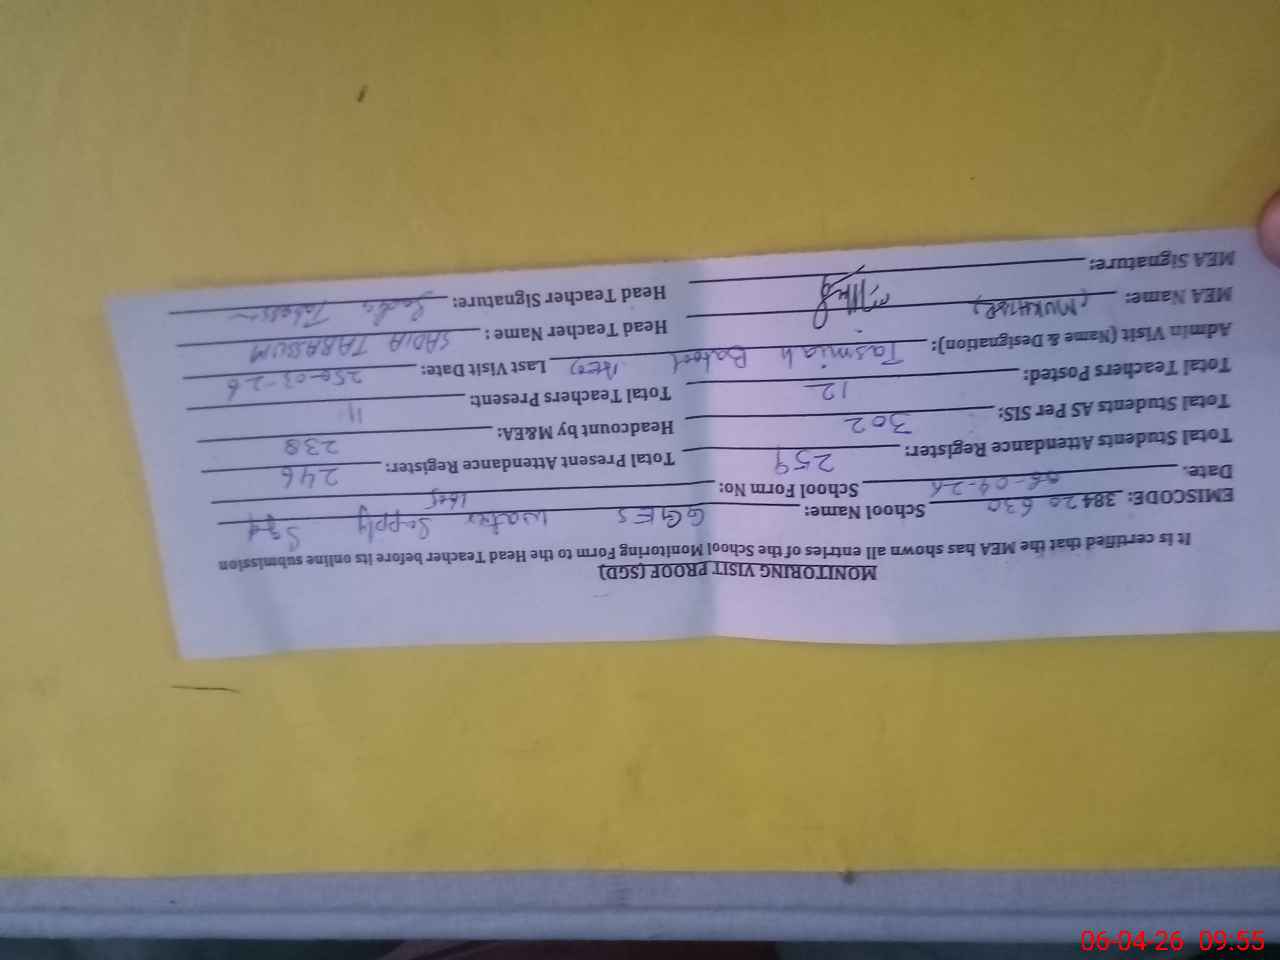 MONITORING VISIT PROOF (SGD)
It is certified that the MEA has shown all entries of the School Monitoring Form to the Head Teacher before its online submission
EMISCODE: 38420630 School Name: GGES Water Supply Sgd
Date. 06-04-26 School Form No:
Total Students Attendance Register: 259 Total Present Attendant Register: 246
Total Students AS Per SIS: 302 Headcount by M&EA: 238
Total Teachers Posted: 12 Total Teachers Present: 11
Admin Visit (Name & Designation): Tasmiah Batool Last Visit Date: 25-03-26
MEA Name: Head Teacher Name : SADIA TABASSUM
MEA Signature: Head Teacher Signature: Sadia Tabassum
06-04-26 09:55